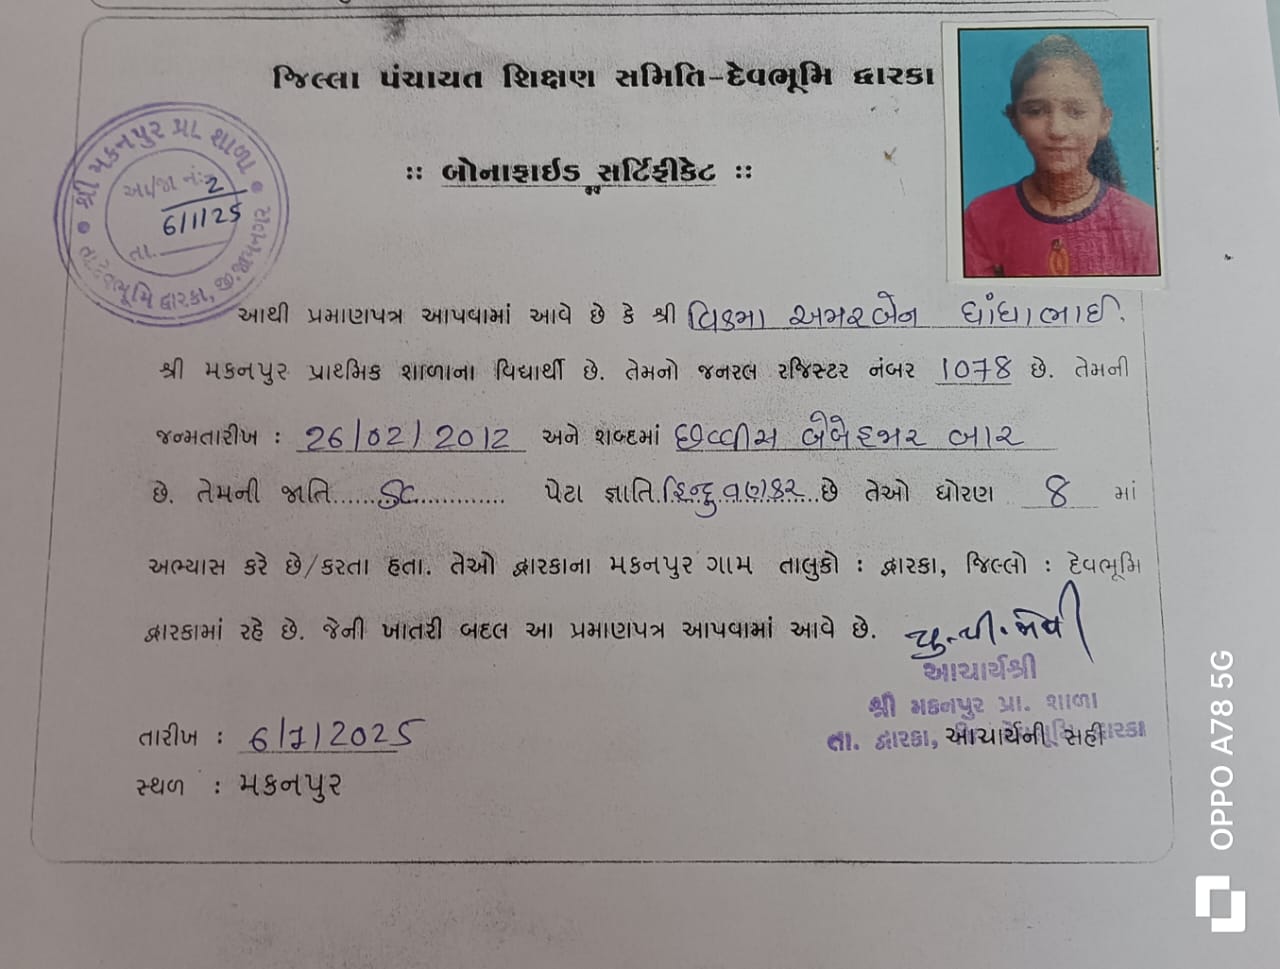 જિલ્લા પંચાયત શિક્ષણ સમિતિ-દેવભૂમિ દ્વારકા
:: બોનાફાઇડ સર્ટિફીકેટ ::
શ્રી મકનપુર પ્રા. શાળા
આ/જા નં: 2
6/1/25
તા.
તા.દેવભૂમિ દ્વારકા, જી.જામનગર
આથી પ્રમાણપત્ર આપવામાં આવે છે કે શ્રી વિકમા અમરબેન ધાંધાભાઈ.
શ્રી મકનપુર પ્રાથમિક શાળાના વિદ્યાર્થી છે. તેમનો જનરલ રજિસ્ટર નંબર 1078 છે. તેમની
જન્મતારીખ : 26/02/2012 અને શબ્દમાં છવ્વીસ બેબેહજાર બાર
છે. તેમની જાતિ......SC............ પેટા જ્ઞાતિ.હિન્દુ વણકર..છે તેઓ ધોરણ 8 માં
અભ્યાસ કરે છે/કરતા હતા. તેઓ દ્વારકાના મકનપુર ગામ તાલુકો : દ્વારકા, જિલ્લો : દેવભૂમિ
દ્વારકામાં રહે છે. જેની ખાતરી બદલ આ પ્રમાણપત્ર આપવામાં આવે છે.
આચાર્યશ્રી
શ્રી મકનપુર પ્રા. શાળા
તા. દ્વારકા, આચાર્યની સહી
તારીખ : 6/7/2025
સ્થળ : મકનપુર
OPPO A78 5G